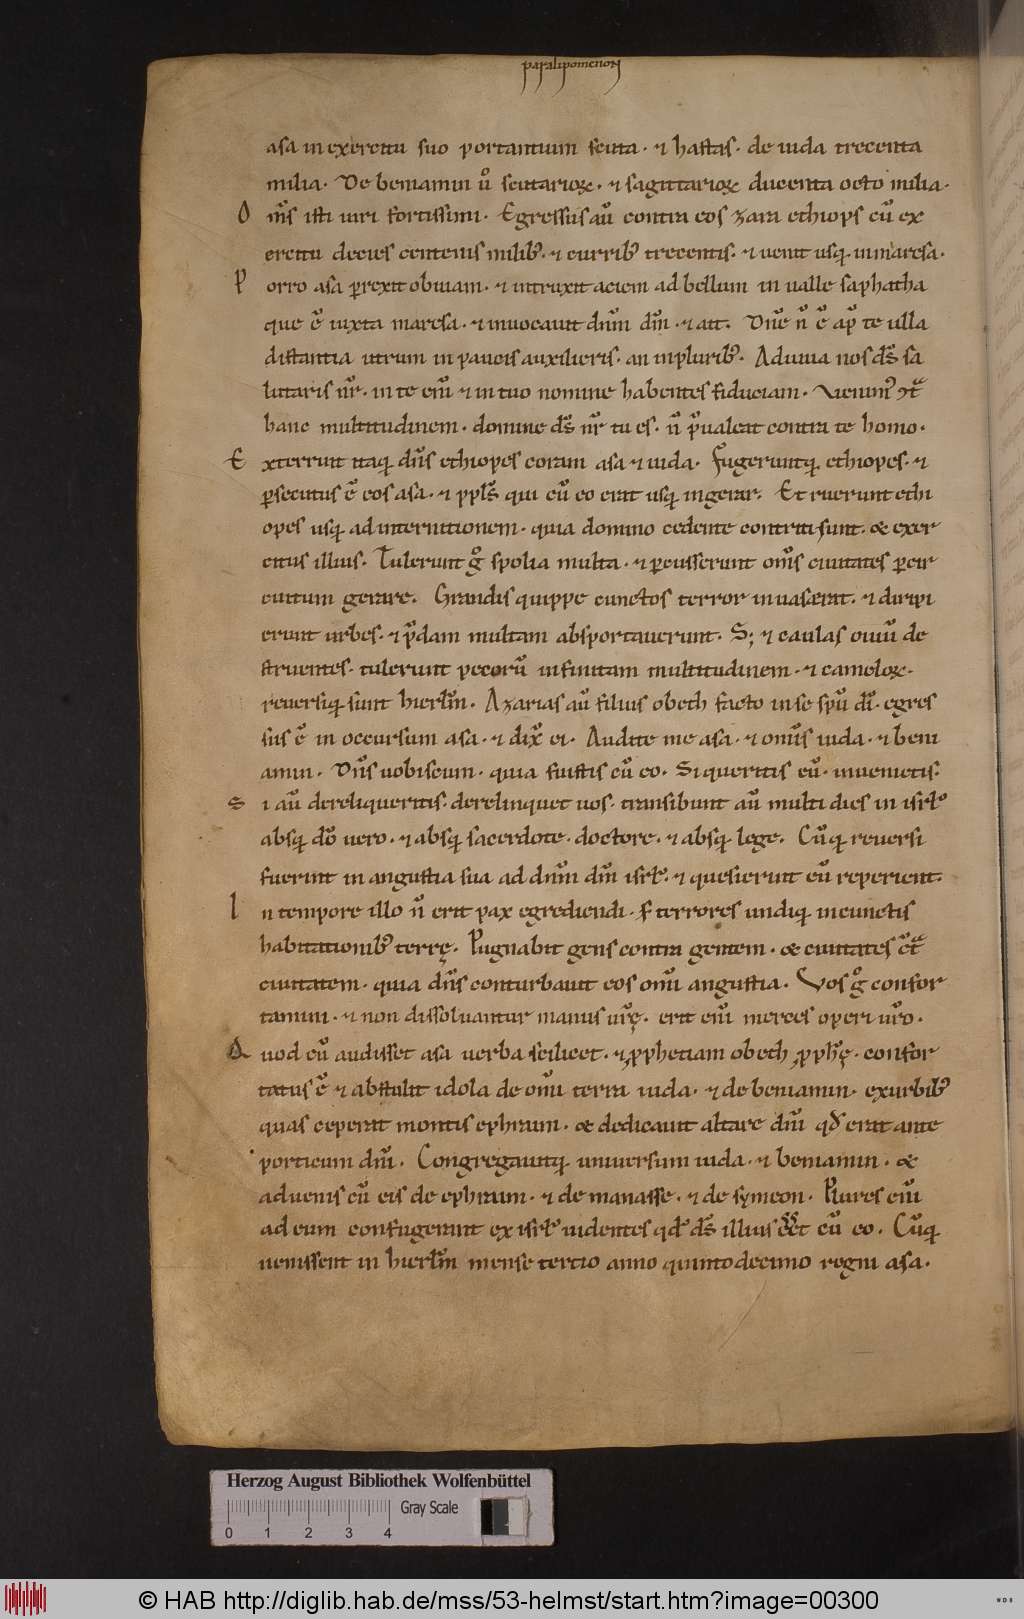 paralipomenon
asa in exercitu suo portantium scuta · ⁊ hastas · de iuda trecenta
milia · De beniamin ũ scutarioꝝ · ⁊ sagittarioꝝ ducenta octo milia ·
O m̃s isti uiri fortissimi · Egressus aũ contra eos zara ethiops cũ ex
ercitu decies centenis milib; · ⁊ currib; trecentis · ⁊ uenit usq; in maresa ·
P orro asa ꝑrexit obuiam · ⁊ intruxit aciem ad bellum in ualle saphatha
que ẽ iuxta maresa · ⁊ inuocauit dñm dm̃ · ⁊ ait · Dñe ñ ẽ ap̃ te ulla
distantia utrum in paucis auxilieris · an in plurib; · Adiuua nos ds̃ sa
lutaris nr̃ · in te eni̅ ⁊ in tuo nomine habentes fiduciam · Venim᷒ ↄt̃
hanc multitudinem · domine ds̃ nr̃ tu es · ñ p̃ualeat contra te homo ·
E xterruit itaq; dñs ethiopes coram asa ⁊ iuda · Fugeruntq; ethiopes · ⁊
ꝑsecutus ẽ eos asa · ⁊ ppl̃s qui cũ eo erat usq; in gerar · Et ruerunt ethi
opes usq; ad internitionem · quia domino cedente contriti sunt · & exer
citus illius · Tulerunt g̊ spolia multa · ⁊ ꝑcusserunt om̃s ciuitates ꝑ cir
cuitum gerare · Grandis quippe cunctos terror inuaserat · ⁊ diripi
erunt urbes · ⁊ p̃dam multam absportauerunt · S; ⁊ caulas ouiũ de
struentes · tulerunt pecorũ infinitam multitudinem · ⁊ cameloꝝ ·
reuersiq; sunt hierl̃m · Azarias aũ filius obeth facto in se spũ di̅ · egres
sus ẽ in occursum asa · ⁊ dix̃ ei · Audite me asa · ⁊ omi̅s iuda · ⁊ beni
amin · Dñs uobiscum · quia fuistis cũ eo · Si queritis eũ · inuenietis ·
S i aũ dereliqueritis · derelinquet uos · transibunt aũ multi dies in isrl̃
absq; dõ uero · ⁊ absq; sacerdote · doctore · ⁊ absq; lege · Cũq; reuersi
fuerint in angustia sua ad dñm dm̃ isrl̃ · ⁊ quesierint eũ reperient ·
I n tempore illo ñ erit pax egrediendi · s; terrores undiq; in cunctis
habitationib; terrę · Pugnabit gens contra gentem · & ciuitates ↄt̃
ciuitatem · quia dñs conturbauit eos omi̅ angustia · Vos g̊ confor
tamini · ⁊ non dissoluantur manus ur̃ę · erit eni̅ merces operi ur̃o ·
Q uod cũ audisset asa uerba scilicet · ⁊ prophetiam obeth proph̃ę · confor
tatus ẽ ⁊ abstulit idola de omi̅ terra iuda · ⁊ de beniamin · ex urbib;
quas ceperat montis ephraim · & dedicauit altare dni̅ qd̃ erat ante
porticum dni̅ · Congregauitq; uniuersum iuda · ⁊ beniamin · &
aduenis cũ eis de ephraim · ⁊ de manasse · ⁊ de symeon · Plures eni̅
ad eum confugerant ex isrl̃ uidentes qd̃ ds̃ illius cũ eo · Cũq;
uenissent in hierl̃m mense tercio anno quinto decimo regni asa ·
Herzog August Bibliothek Wolfenbüttel
Gray Scale
0 1 2 3 4
© HAB http://diglib.hab.de/mss/53-helmst/start.htm?image=00300